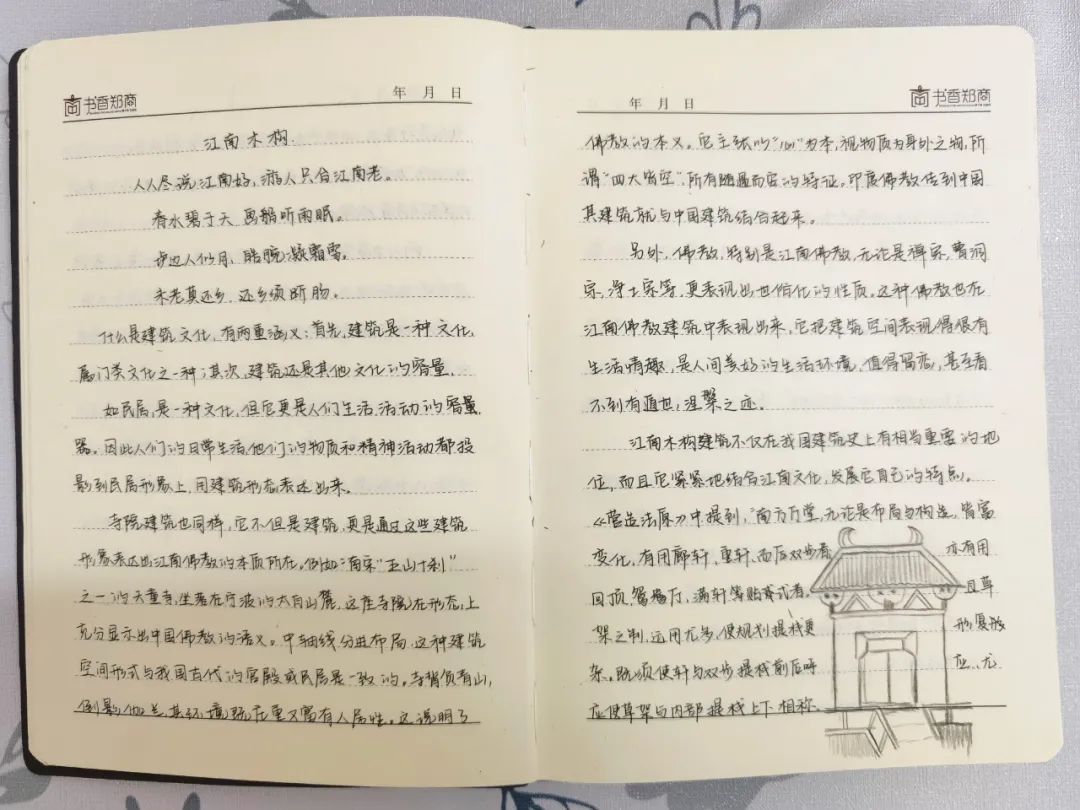 书香郑商
年 月 日
江南木构
人人尽说江南好，游人只合江南老。
春水碧于天 画船听雨眠。
步边人似月，皓腕凝霜雪。
未老莫还乡，还乡须断肠。
什么是建筑文化，有两重涵义：首先，建筑是一种文化，
属门类文化之一种；其次，建筑还是其他文化的容量，
如民居，是一种文化，但它更是人们生活，活动的容量
器。因此人们的日常生活，他们的物质和精神活动都投
影到民居形象上，用建筑形态表述出来。
寺院建筑也同样，它不但是建筑，更是通过这些建筑
形象表达出江南佛教的本质所在，例如“南宋“五山十刹”
之一的天童寺，坐落在宁波的太白山麓，这座寺院在形态上
充分显示出中国佛教的涵义。中轴线分进布局，这种建筑
空间形式与我国古代的宫殿或民居是一致的。寺背负青山，
倒影，其环境既庄重又富有人属性。这说明了
年 月 日
书香郑商
佛教的本义。它主张以“心”为本，视物质为身外之物，所
谓“四大皆空”，所有随遇而安的特征。印度佛教传到中国
其建筑就与中国建筑结合起来。
另外，佛教，特别是江南佛教，无论是禅宗，曹洞
宗，净土宗等，更表现出世俗化的性质。这种佛教也在
江南佛教建筑中表现出来，它把建筑空间表现得很有
生活情趣，是人间美好的生活环境，值得留恋，甚至看
不到有遁世，涅槃之迹。
江南木构建筑不仅在我国建筑史上有相当重要的地
位，而且它紧紧地结合江南文化，发展它自己的特点。
《营造法原》中提到，“南方厅堂，无论是布局与构造，皆富
变化，有用廊轩，重轩，而后双步者 亦有用
回顶，鸳鸯厅，满轩等贴式者， 且草
架之制，运用尤多，使规划提栈更 形复杂
杂。既须使轩与双步提栈前后呼 应，尤
应使草架与内部提栈上下相称。